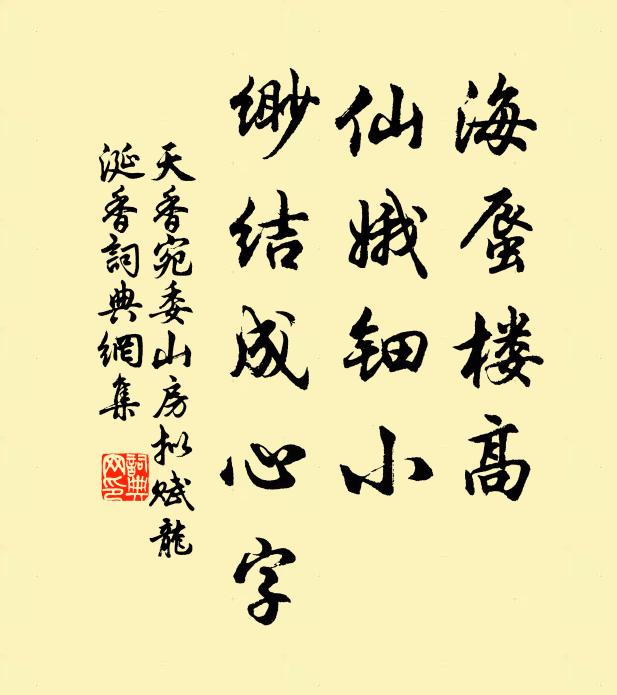 海蜃楼高
仙娥钿小
缈结成心字
天香宛委山房拟赋龙
涎香詞典網集
詞典
网印